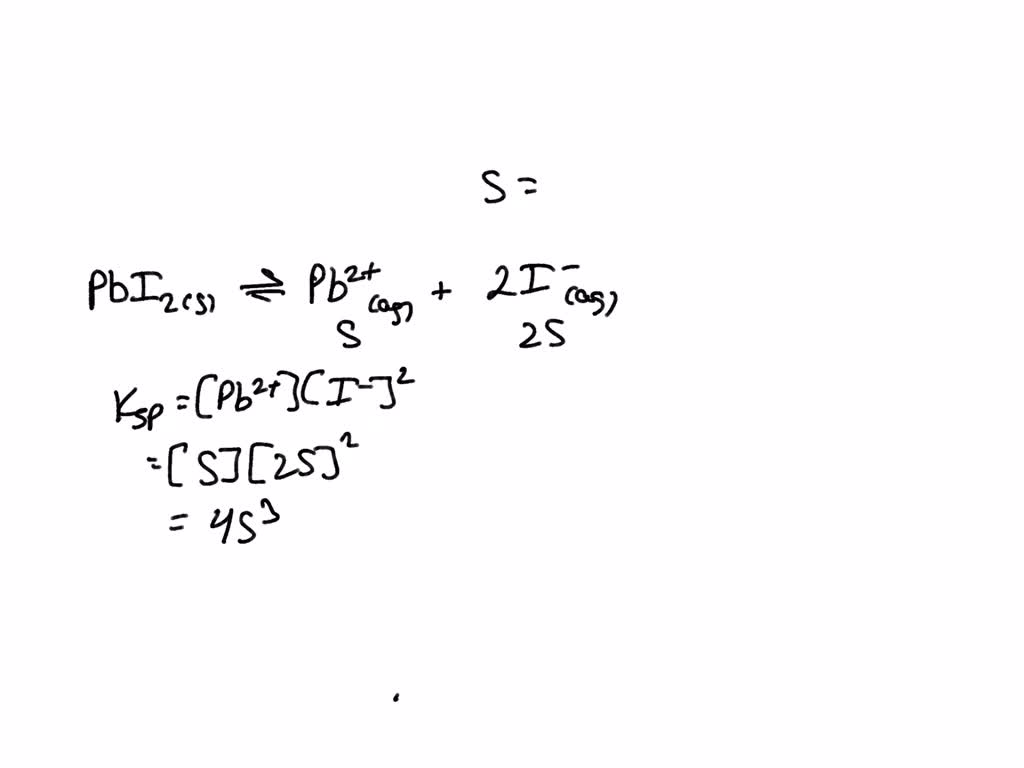 S =
PbI₂(s) ⇌ Pb²⁺(aq) + 2I⁻(aq)
S 2S
Ksp = [Pb²⁺][I⁻]²
= [S][2S]²
= 4S³